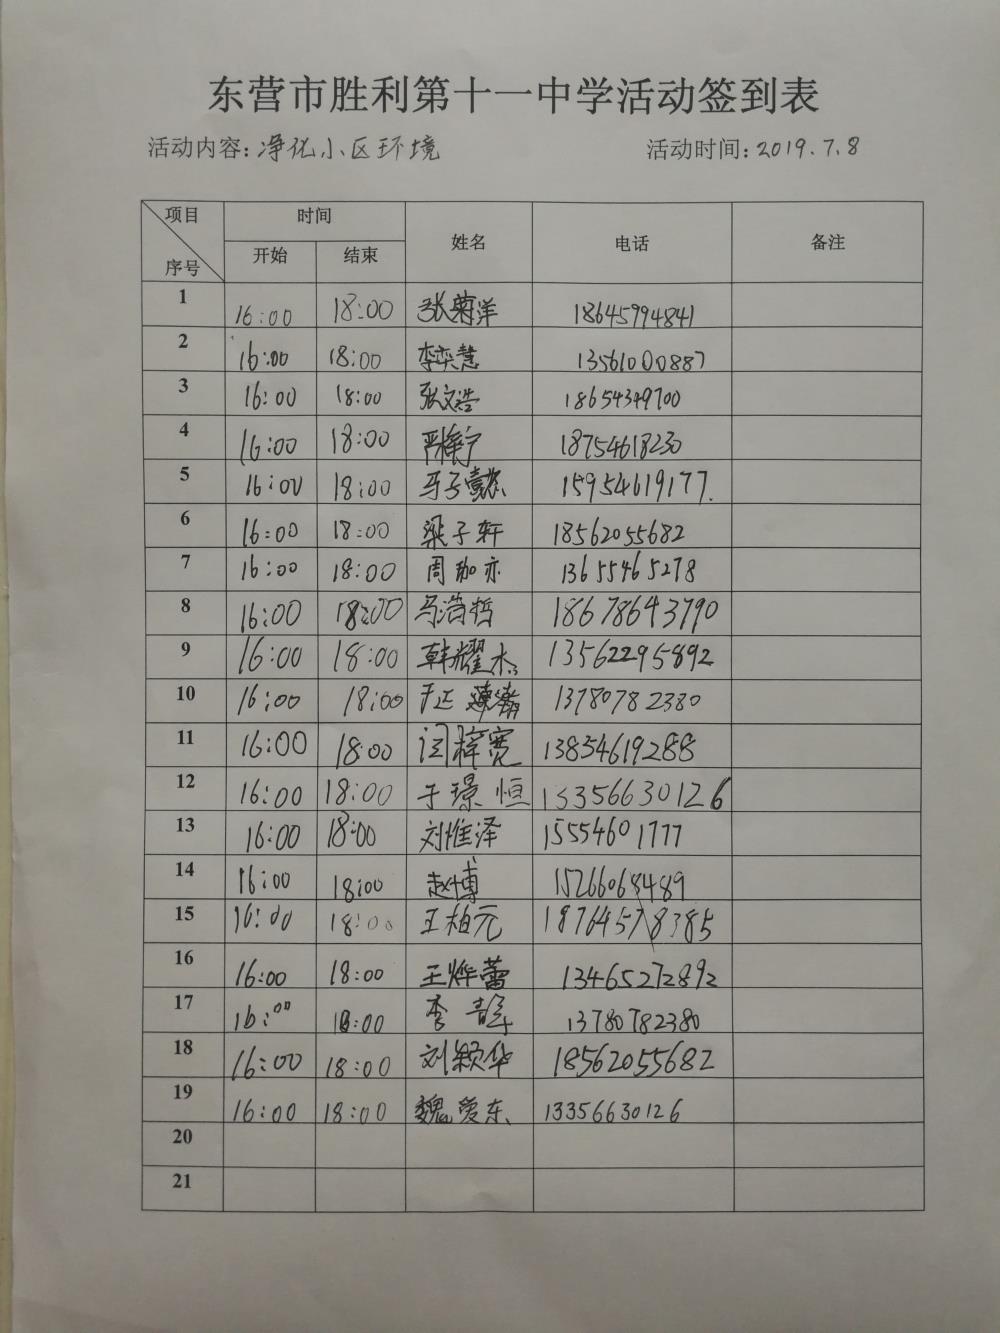 东营市胜利第十一中学活动签到表
活动内容:净化小区环境 活动时间:2019.7.8
项目 时间 姓名 电话 备注
序号 开始 结束
1 16:00 18:00 张菊洋 18645994841
2 16:00 18:00 李奕慧 13561000887
3 16:00 18:00 张文浩 18654349700
4 16:00 18:00 严梓宁 18754618230
5 16:00 18:00 马子懿 15954619177.
6 16:00 18:00 梁子轩 18562055682
7 16:00 18:00 周珈亦 13655465278
8 16:00 18:00 马浩哲 18678643790
9 16:00 18:00 韩耀杰 13562295892
10 16:00 18:00 于正 13780782380
11 16:00 18:00 闫梓宽 13854619288
12 16:00 18:00 于璟恒 13356630126
13 16:00 18:00 刘惟泽 15554601777
14 16:00 18:00 赵博 15266068489
15 16:00 18:00 王柏元 18764578385
16 16:00 18:00 王烨蕾 13465272892
17 16:00 18:00 李静 13780782380
18 16:00 18:00 刘颖华 18562055682
19 16:00 18:00 魏爱东 13356630126
20
21